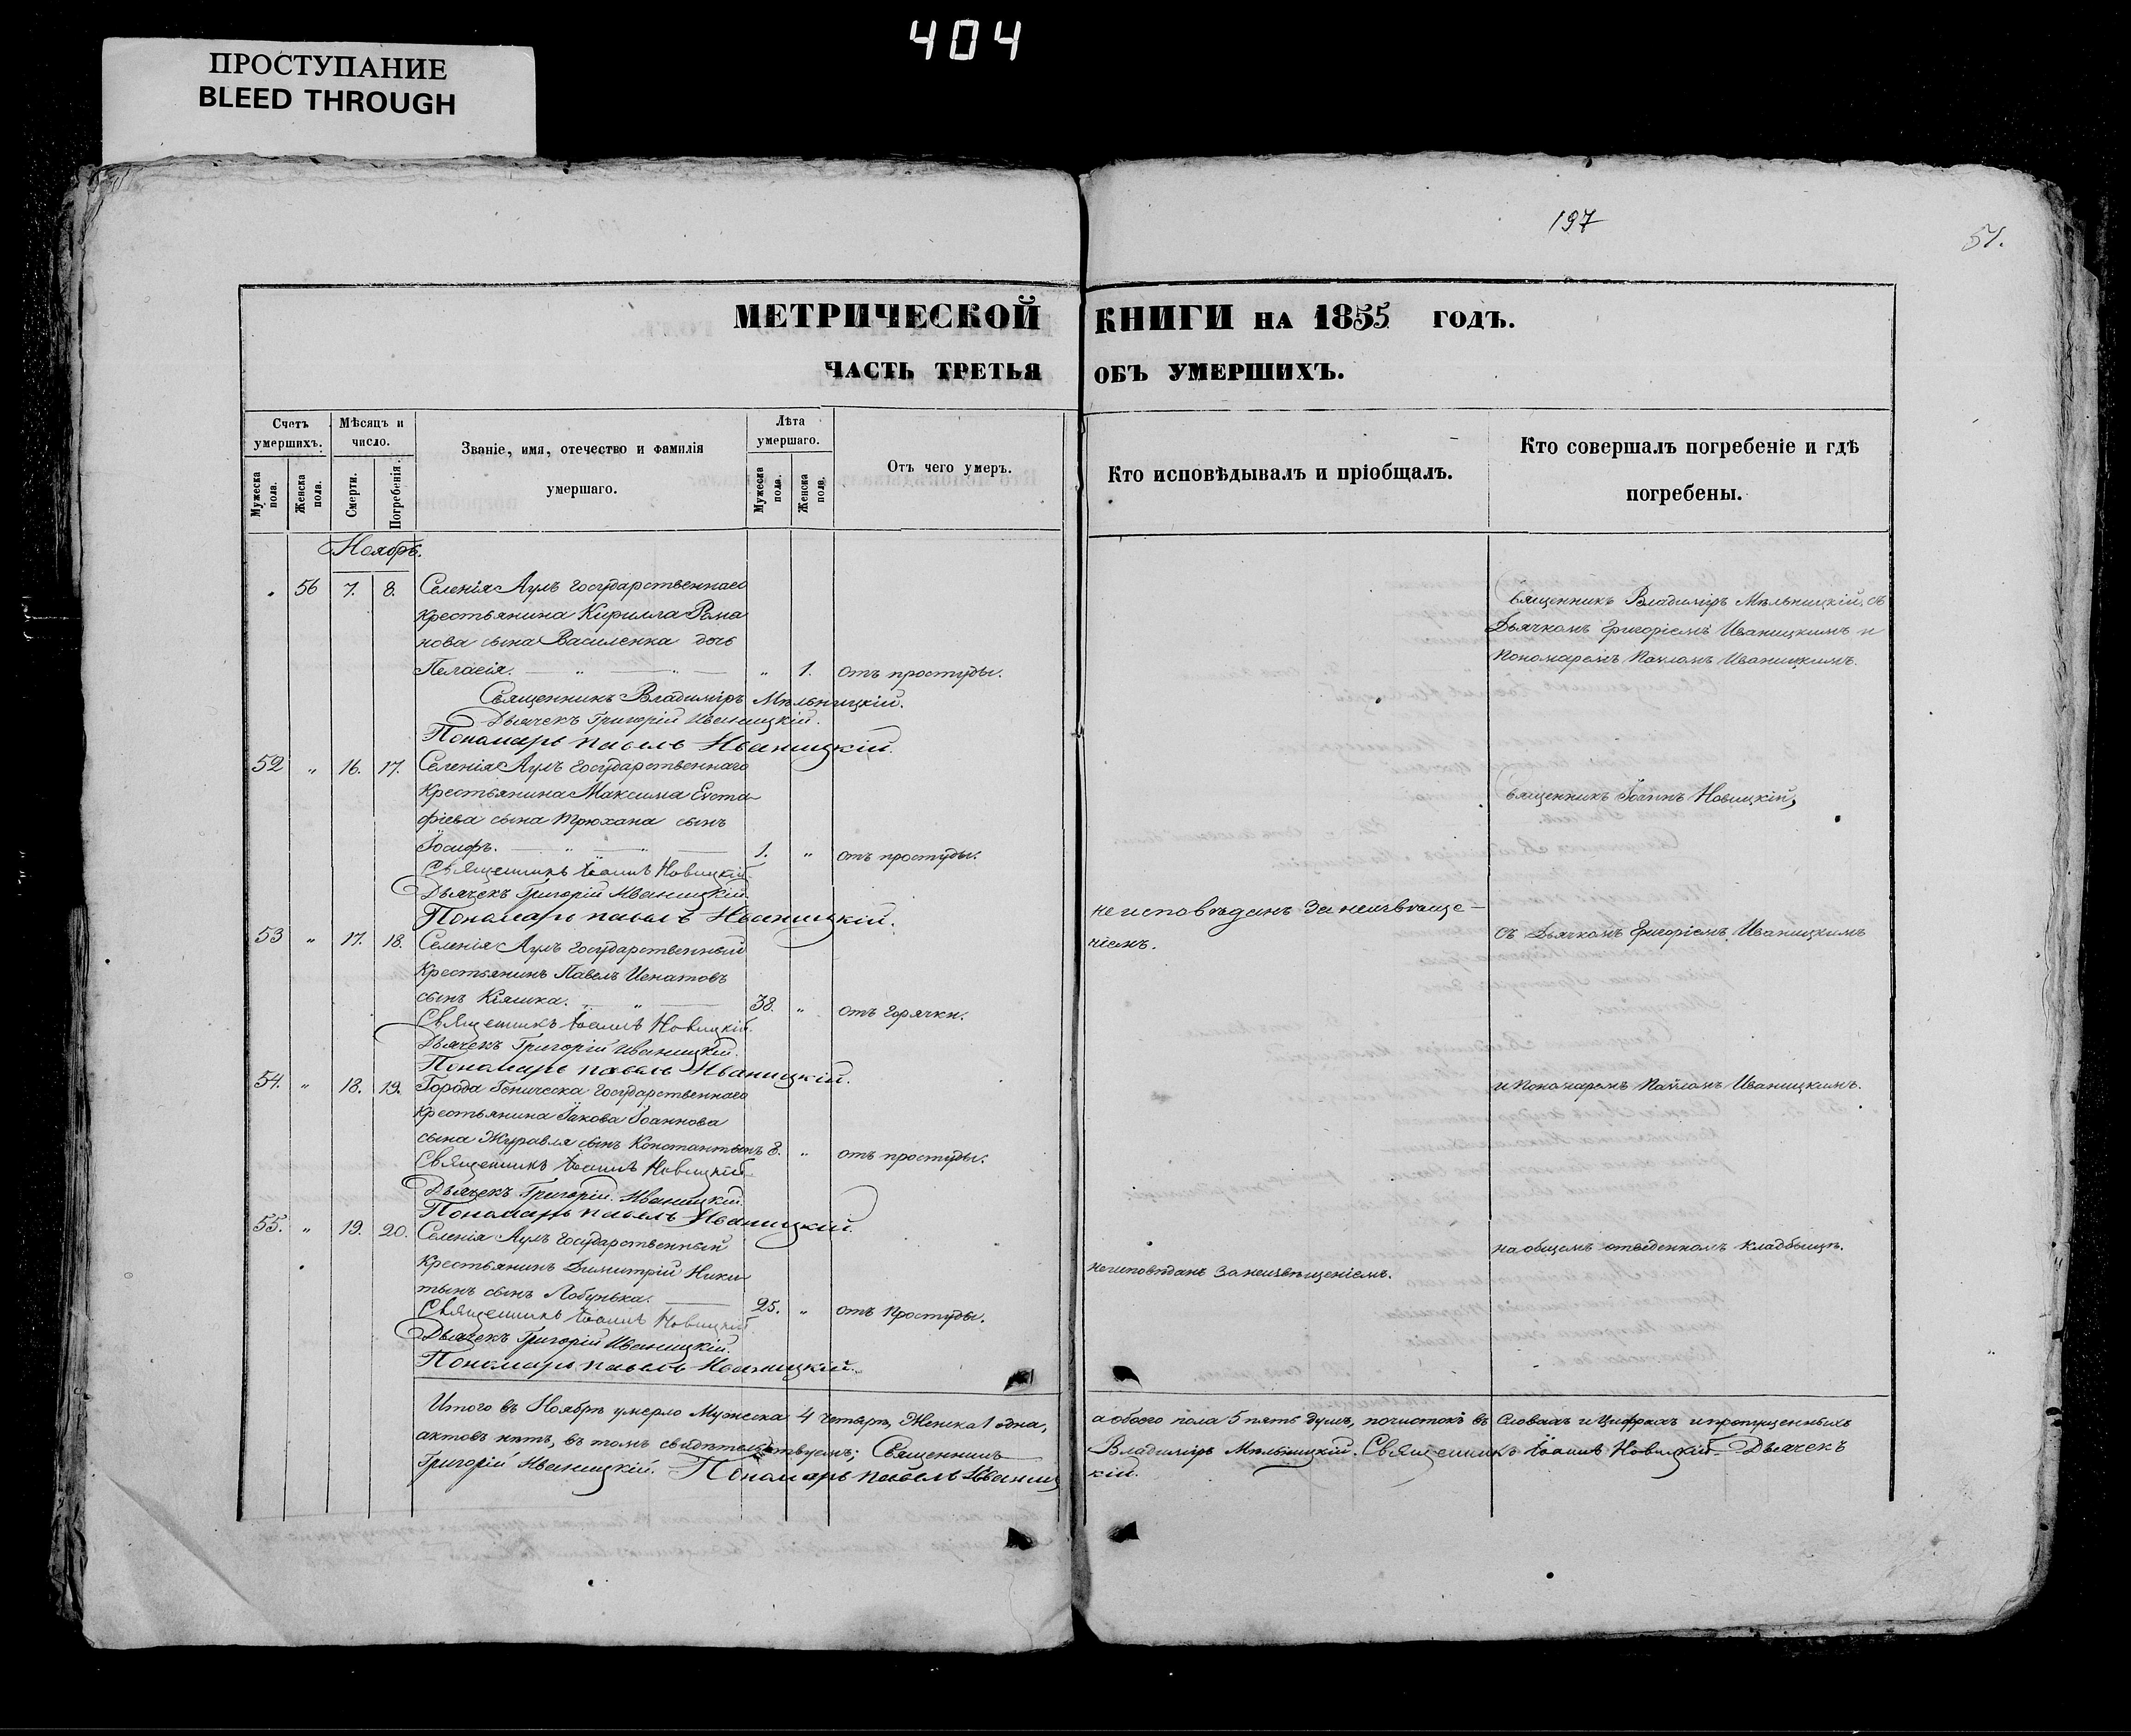 404
ПРОСТУПАНИЕ
BLEED THROUGH
197
51.
МЕТРИЧЕСКОЙ КНИГИ НА 1855 ГОДЪ.
ЧАСТЬ ТРЕТЬЯ ОБЪ УМЕРШИХЪ.
Счетъ умершихъ.
Мужеска пола.
Женска пола.
Мѣсяцъ и число.
Смерти.
Погребенія.
Званіе, имя, отечество и фамилія
умершаго.
Лѣта умершаго.
Мужеска пола.
Женска пола.
Отъ чего умеръ.
Кто исповѣдывалъ и пріобщалъ.
Кто совершалъ погребеніе и гдѣ
погребены.
Ноябрь.
56 7. 8. Селенія Аулъ Государственнаго
крестьянина Кирилла Рома
нова сына Василенка дочь
Пелагія. " 1. отъ простуды.
Священникъ Владиміръ Мѣльницкій.
Дьячекъ Григорій Иваницкій.
Пономарь Павелъ Иваницкій.
Священникъ Владиміръ Мѣльницкій, съ
Дьячкомъ Григоріемъ Иваницкимъ и
Пономаремъ Павломъ Иваницкимъ.
52 " 16. 17. Селенія Аулъ Государственнаго
Крестьянина Максима Евста
фіева сына Трюхана сынъ
Іосифъ. 1. " отъ простуды.
Священникъ Іоаннъ Новицкій.
Дьячекъ Григорій Иваницкій.
Пономарь Павелъ Иваницкій.
Священникъ Іоаннъ Новицкій,
53 " 17. 18. Селенія Аулъ Государственный
Крестьянинъ Павелъ Игнатовъ
сынъ Кияшка. 38. " отъ горячки.
Священникъ Іоаннъ Новицкій.
Дьячекъ Григорій Иваницкій.
Пономарь Павелъ Иваницкій.
не исповѣданъ за неизвѣще-
ніемъ.
съ Дьячкомъ Григоріемъ Иваницкимъ
54. " 18. 19. Города Геническа Государственнаго
крестьянина Іакова Іоаннова
сына Журавля сынъ Константинъ 8. " отъ простуды.
Священникъ Іоаннъ Новицкій
Дьячекъ Григорій Иваницкій
Пономарь Павелъ Иваницкій.
и Пономаремъ Павломъ Иваницкимъ.
55. " 19. 20. Селенія Аулъ Государственный
Крестьянинъ Димитрій Ники
тинъ сынъ Лобунька. 25. " отъ Простуды.
Священникъ Іоаннъ Новицкій.
Дьячекъ Григорій Иваницкій.
Пономарь Павелъ Иваницкій.
не исповѣданъ за неизвѣщеніемъ.
на общемъ отведенномъ кладбищѣ.
Итого въ Ноябрѣ умерло Мужеска 4 четыре, Женска 1 одна, а обоего пола 5 пять душъ, почистокъ въ Словахъ и Цифрахъ и пропущенныхъ
актовъ нѣтъ, въ томъ свидѣтельствуемъ; Священникъ Владиміръ Мѣльницкій. Священникъ Іоаннъ Новицкій Дьячекъ
Григорій Иваницкій. Пономарь Павелъ Иваниц кій.